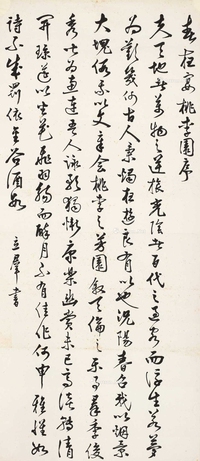 春夜宴桃李園序
夫天地者萬物之逆旅光陰者百代之過客而浮生若夢
為歡幾何古人秉燭夜遊良有以也況陽春召我以烟景
大塊假我以文章會桃李之芳園敘天倫之樂事羣季俊
秀皆為惠連吾人詠歌獨慚康樂幽賞未已高談轉清
開瓊筵以坐花飛羽觴而醉月不有佳作何申雅懷如
詩不成罰依金谷酒數
立羣書